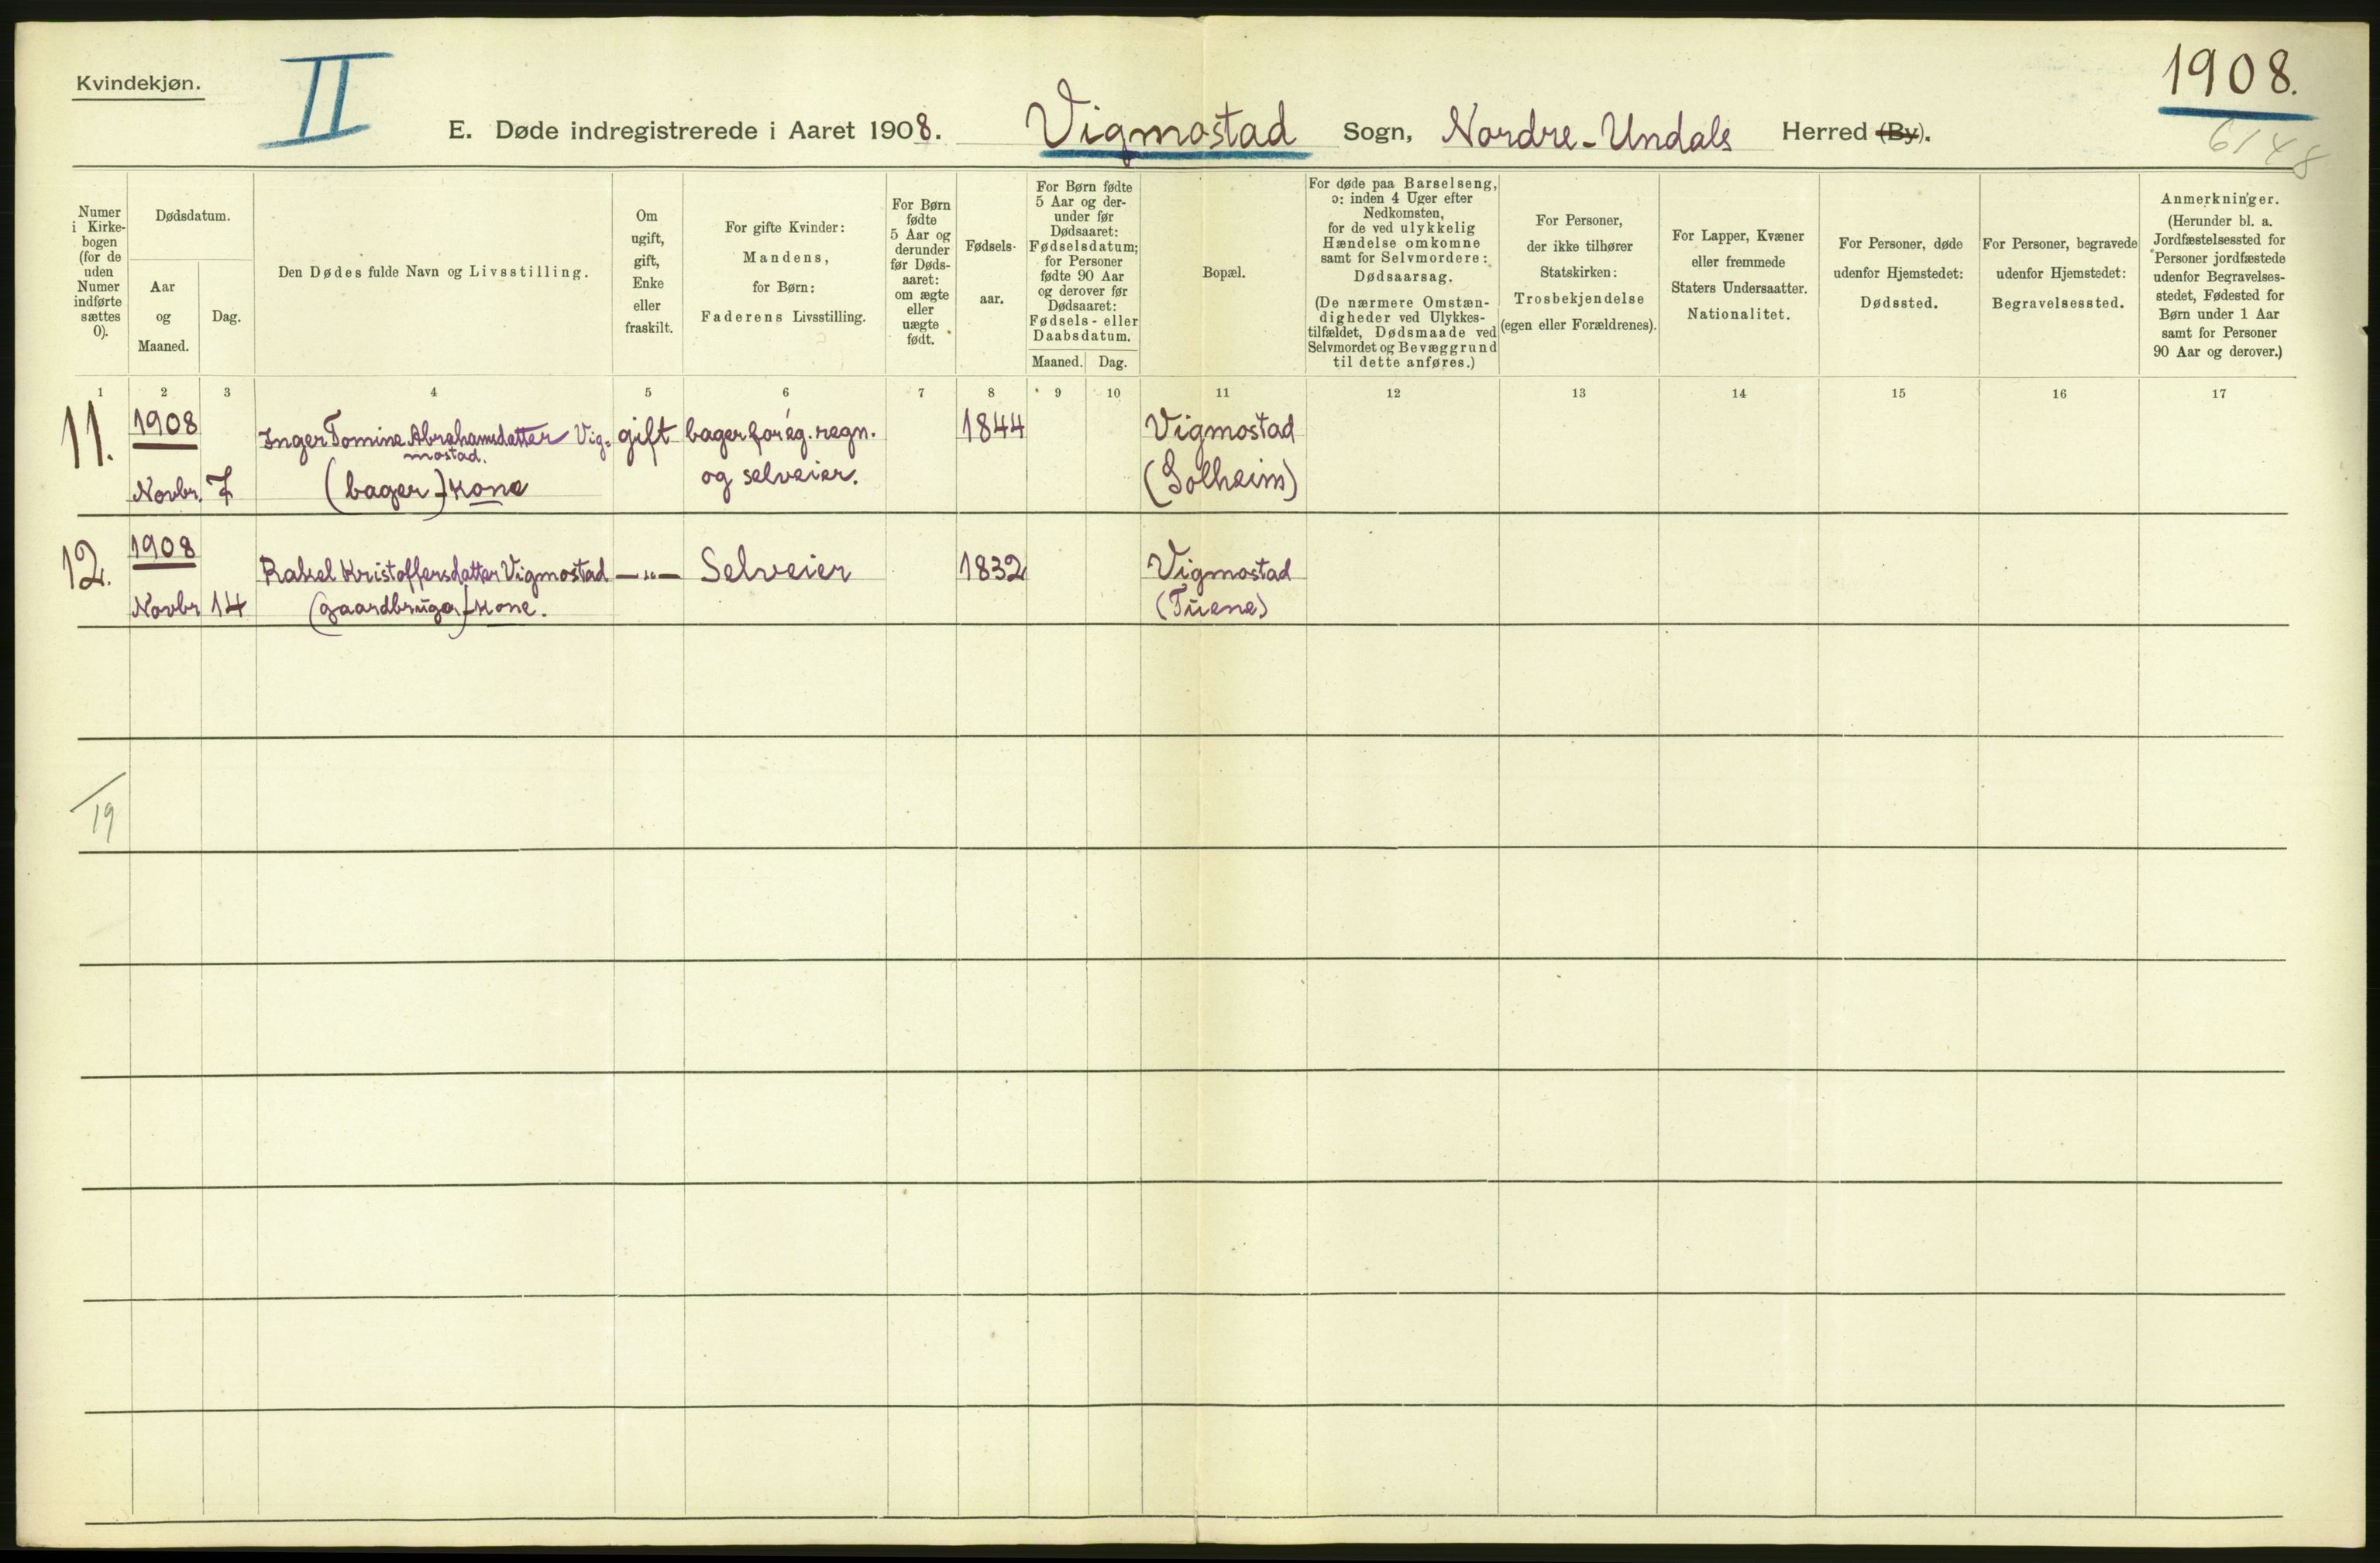 Kvindekjøn.
II
1908.
E. Døde indregistrerede i Aaret 1908. Vigmostad Sogn, Nordre-Undals Herred (By).
6148
Numer
i Kirke-
bogen
(for de
uden
Numer
indførte
sættes
0).
Dødsdatum.
Aar
og
Maaned.
Dag.
Den Dødes fulde Navn og Livsstilling.
Om
ugift,
gift,
Enke
eller
fraskilt.
For gifte Kvinder:
Mandens,
for Børn:
Faderens Livsstilling.
For Børn
fødte
5 Aar og
derunder
før Døds-
aaret:
om ægte
eller
uægte
født.
Fødsels-
aar.
For Børn fødte
5 Aar og der-
under før
Dødsaaret:
Fødselsdatum;
for Personer
fødte 90 Aar
og derover før
Dødsaaret:
Fødsels- eller
Daabsdatum.
Maaned. Dag.
Bopæl.
For døde paa Barselseng,
ɔ: inden 4 Uger efter
Nedkomsten,
for de ved ulykkelig
Hændelse omkomne
samt for Selvmordere:
Dødsaarsag.
(De nærmere Omstæn-
digheder ved Ulykkes-
tilfældet, Dødsmaade ved
Selvmordet og Bevæggrund
til dette anføres.)
For Personer,
der ikke tilhører
Statskirken:
Trosbekjendelse
(egen eller Forældrenes).
For Lapper, Kvæner
eller fremmede
Staters Undersaatter.
Nationalitet.
For Personer, døde
udenfor Hjemstedet:
Dødssted.
For Personer, begravede
udenfor Hjemstedet:
Begravelsessted.
Anmerkninger.
(Herunder bl. a.
Jordfæstelsessted for
Personer jordfæstede
udenfor Begravelses-
stedet, Fødested for
Børn under 1 Aar
samt for Personer
90 Aar og derover.)
1 2 3 4 5 6 7 8 9 10 11 12 13 14 15 16 17
11. 1908 Inger Tomine Abrahamsdatter Vig= gift bager for eg. regn. 1844 Vigmostad
mostad.
Novbr. 7 (bager) kone og selveier. (Solheim)
12. 1908 Rakel Kristoffersdatter Vigmostad —"— Selveier 1832 Vigmostad
Novbr 14 (gaardbruger) kone. (Tuene)
19